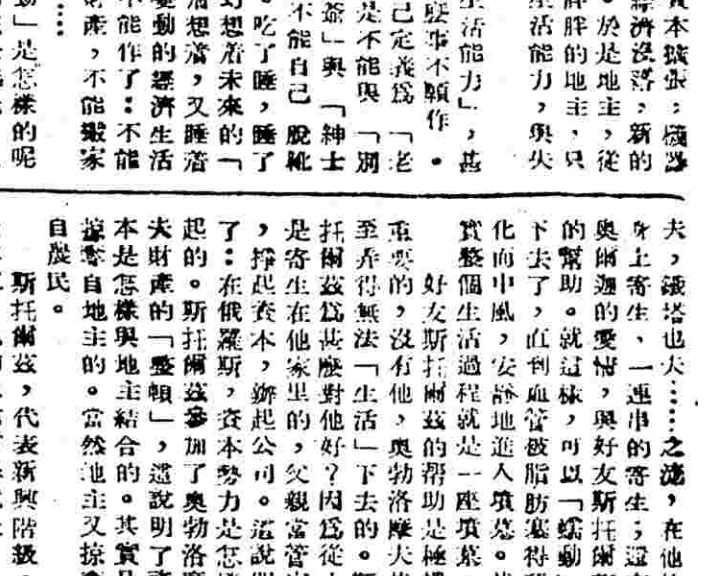 資本擴張，機器
經濟沒落，新的
。於是地主，從
胖胖的地主，只
生活能力，與失
生活能力」，甚
麼事不願作。
己定義爲「老
是不能與「別
爺」與「紳士
不能自己脫靴
。吃了睡，睡了
幻想着未來的「
着想着，又睡着
變動的經濟生活
不能作了：不能
財產，不能搬家
……
動」是怎樣的呢
夫，鐵塔也夫……之流，在他
身上寄生、一連串的寄生；還
與爾迦的愛情，與好友斯托爾
的幫助。就這樣，可以「蠕動
下去了，直到血管被脂肪塞得
化而中風，安靜地進入墳墓。
實整個生活過程就是一座墳墓
好友斯托爾茲的幫助是極
重要的，沒有他，奥勃洛摩夫
至弄得無法「生活」下去的。
托爾茲爲甚麼對他好？因爲從
是寄生在他家里的，父親當管
，擇起資本，辦起公司。這說
了：在俄羅斯，資本勢力是怎
起的。斯托爾茲參加了奥勃洛
夫財產的「整頓」，這說明了
本是怎樣與地主結合的。其實
掠奪自地主的。當然地主又掠
自農民。
斯托爾茲，代表新興階級